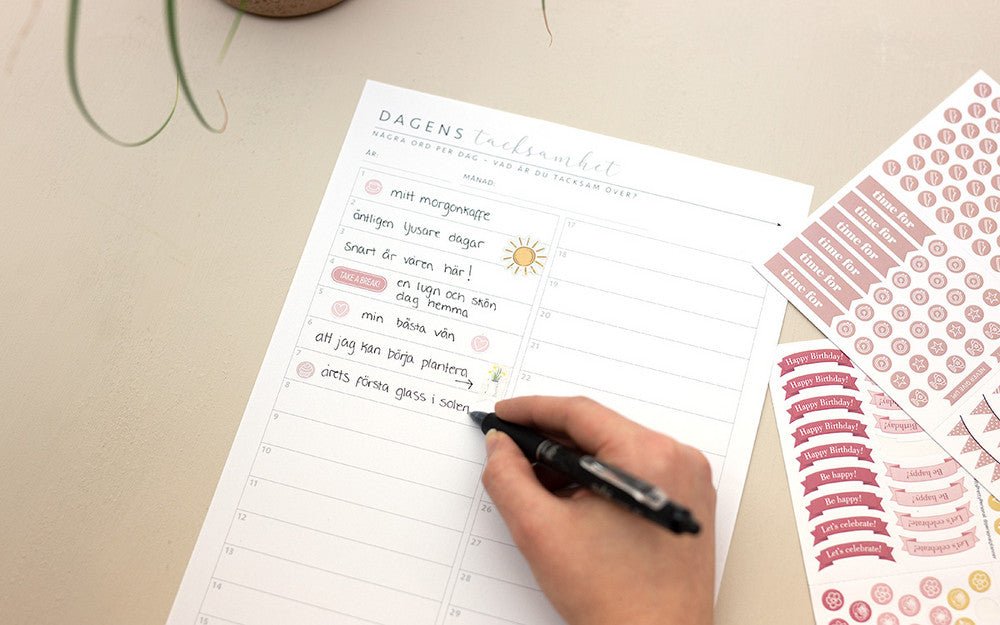 DAGENS tacksamhet
NÅGRA ORD PER DAG - VAD ÄR DU TACKSAM ÖVER?
ÅR:
MÅNAD:
1
mitt morgonkaffe
2
äntligen ljusare dagar
3
snart är våren här!
4
TAKE A BREAK!
en lugn och skön
dag hemma
5
min bästa vän
6
att jag kan börja plantera
7
årets första glass i solen
8
9
10
11
12
13
14
15
17
18
19
20
21
22
26
27
28
29
time for
time for
time for
time for
time for
time for
Happy Birthday!
Happy Birthday!
Happy Birthday!
Happy Birthday!
Happy Birthday!
Be happy!
Be happy!
Let's celebrate!
Let's celebrate!
Happy Birthday!
Be happy!
Be happy!
Let's celebrate!
Let's celebrate!